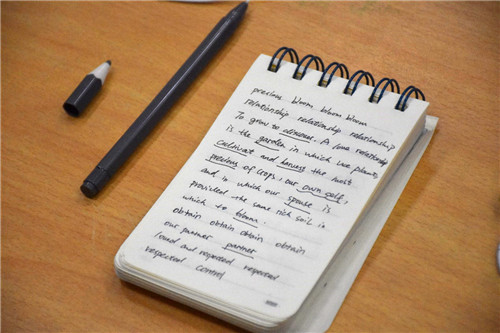 precious bloom bloom bloom
relationship relationship relationship
To grow to discover. A love relationship
is the garden in which we plant,
cultivate and harvest the most
precious of crops, our own self,
and in which our spouse is
provided the same rich soil in
which to bloom.
obtain obtain obtain obtain
our partner partner
found and respected respected
respected control